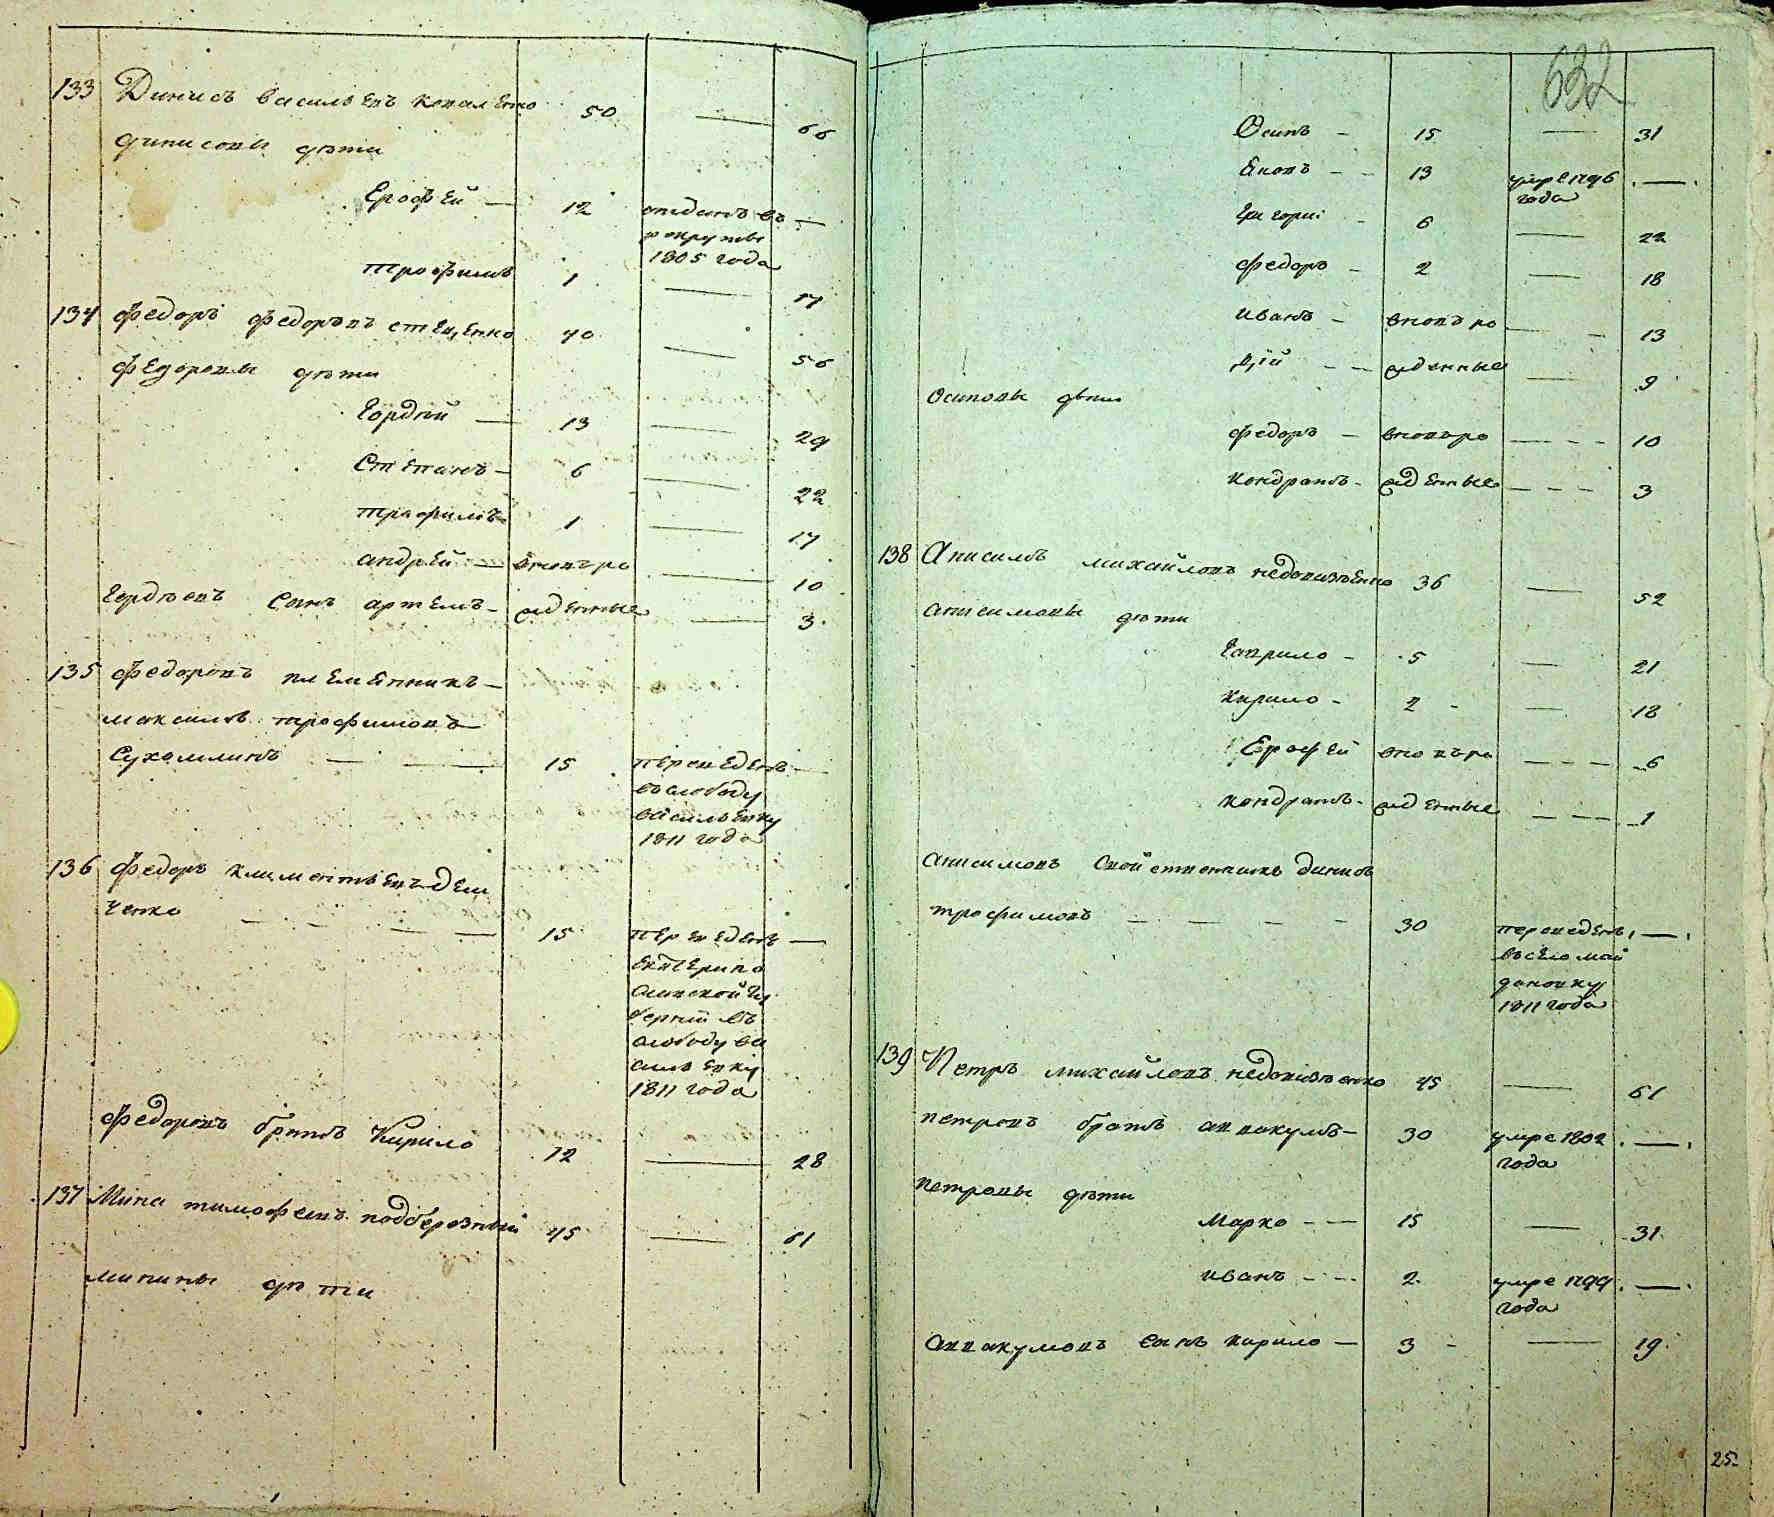 133 Динисъ васильевъ коваленко 50 — 66
динисовы дѣти
Ерофей — 12 отданъ въ —
рекруты
1805 года
трофимъ 1 — 17
134 федоръ федоровъ стеценко 40 — 56
федоровы дѣти
Гордѣй — 13 — 29
Степанъ — 6 — 22
трофимъ 1 — 17
андрей — вновъро — 10
Гордѣевъ Сынъ артемъ — жденные — 3
135 федоровъ племенникъ —
максимъ трофимовъ
Сухомлинъ — — 15 переведенъ —
въ слободу
васильевку
1811 года
136 федоръ климентьевъ дем
ченко — — — — 15 переведенъ —
екатерино
славской гу
берніи въ
слободу ва
сильевку
1811 года
федоровъ братъ Кирило 12 — 28
137 Мина тимофеевъ подберозный 45 — 61
минины дѣти
632
Осипъ — 15 — 31
Яковъ — — 13 умре 1796 —
года
Григорій — 6 — 22
федоръ — 2 — 18
иванъ — вновъро — — 13
дій — — жденные — 9
Осиповы дѣти
федоръ — вновъро — — — 10
кондратъ — жденные — — — 3
138 Анисимъ михайловъ недовизенко 36 — 52
анисимовы дѣти
Гаврило — 5 — 21
кирило — 2 — — 18
Ерофей вновъро — — — 6
кондратъ — жденные — — — 1
анисимовъ Свойственникъ динисъ
трофимовъ — — — — 30 переведенъ —
въ село май
дановку
1811 года
139 Петръ михайловъ недовизенко 45 — 61
петровъ братъ аввакумъ — 30 умре 1802 —
года
петровы дѣти
марко — — 15 — 31
иванъ — — 2 умре 1799 —
года
аввакумовъ сынъ кирило — 3 — — 19
25